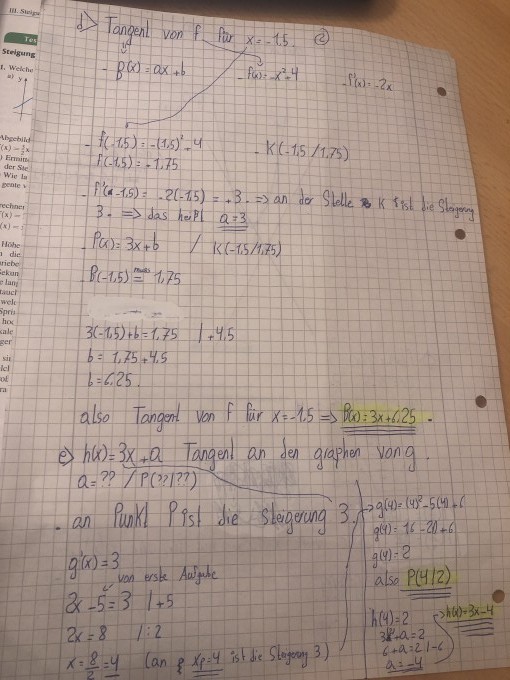 d) Tangent von f für x=-1,5. ②
- B(x)=ax+b - f(x)=-x²+4 - f'(x)=-2x
- f(-1,5)=-(1,5)²+4 - K(-1,5/1,75)
f(-1,5)=+1,75
- f'(-1,5)= -2(-1,5) = +3 => an der Stelle K ist die Steigerung
3. => das heißt a=3
- B(x)=3x+b / K(-1,5/1,75)
- B(-1,5) muss = 1,75
3(-1,5)+b=1,75 |+4,5
b= 1,75+4,5
b=6,25.
also Tangent von f für x=-1,5 => B(x)=3x+6,25.
e) h(x)=3x+a Tangent an den graphen von g.
a=?? / P(??|??)
. an Punkt P ist die Steigerung 3.
g'(x)=3
von erste Aufgabe
2x-5=3 |+5
2x=8 |:2
x=8/2=4 (an xp=4 ist die Steigerung 3)
-> g(4)=(4)²-5(4)+6
g(4)=16-20+6
g(4)=2
also P(4/2)
h(4)=2 -> h(x)=3x-4
+a=2
6+a=2 |-6
a=-4
III. Steige
Tes
Steigung
1. Welche
a) y
Abgebild
Ermin
der Ste
Wie la
gente v
Höhe